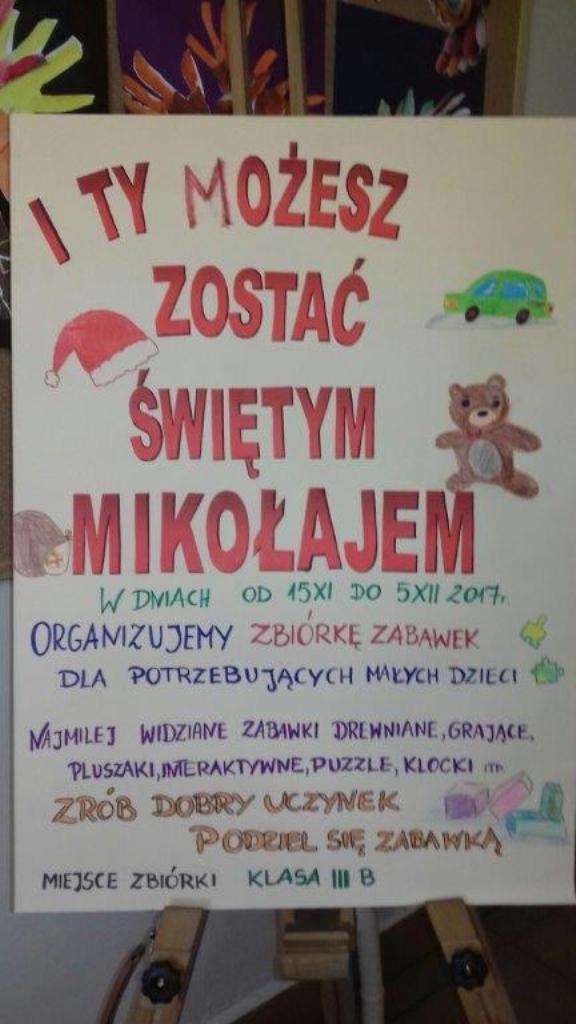 I TY MOŻESZ
ZOSTAĆ
ŚWIĘTYM
MIKOŁAJEM
W DNIACH OD 15XI DO 5XII 2017r.
ORGANIZUJEMY ZBIÓRKĘ ZABAWEK
DLA POTRZEBUJĄCYCH MAŁYCH DZIECI
NAJMILEJ WIDZIANE ZABAWKI DREWNIANE, GRAJĄCE,
PLUSZAKI, INTERAKTYWNE, PUZZLE, KLOCKI ITP.
ZRÓB DOBRY UCZYNEK
PODZIEL SIĘ ZABAWKĄ
MIEJSCE ZBIÓRKI KLASA III B